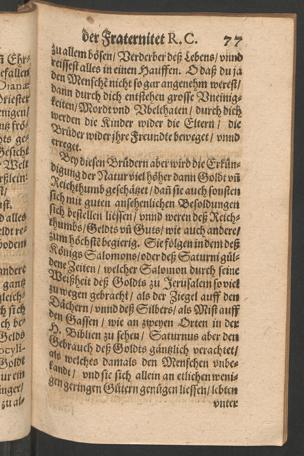 der Fraternitet R. C. 77
zu allem bösen/ Verderber deß Lebens/ vnnd
reissest alles in einen Hauffen. O daß du ja
den Menschē nicht so gar angenehm werest/
dann durch dich entstehen grosse Vneinig-
keiten/ Mord vnd Vbelthaten/ durch dich
werden die Kinder wider die Eltern/ die
Brüder wider jhre Freundte beweget/ vnnd
erreget.
Bey diesen Brüdern aber wird die Erkün-
digung der Natur viel höher dann Goldt vñ
Reichthumb geschätzet/ dañ sie auch sonsten
sich mit guten ansehenlichen Besoldungen
sich bestellen liessen/ vnnd weren deß Reich-
thumbs/ Geldts vñ Guts/ wie auch andere/
zum höchstē begierig. Sie folgen in dem deß
Königs Salomons/ oder deß Saturni gül-
dene Zeiten/ welcher Salomon durch seine
Weißheit deß Goldts zu Jerusalem so viel
zu wegen gebracht/ als der Ziegel auff den
Dächern/ vnnd deß Silbers/ als Mist auff
den Gassen/ wie an zweyen Orten in der
H. Biblien zu sehen/ Saturnus aber den
Gebrauch deß Goldts gäntzlich verachtet/
als welches damals den Menschen vnbe-
kandt/ vnd sie sich allein an etlichen weni-
gen geringen Gütern genügen liessen/ lebten
vnter